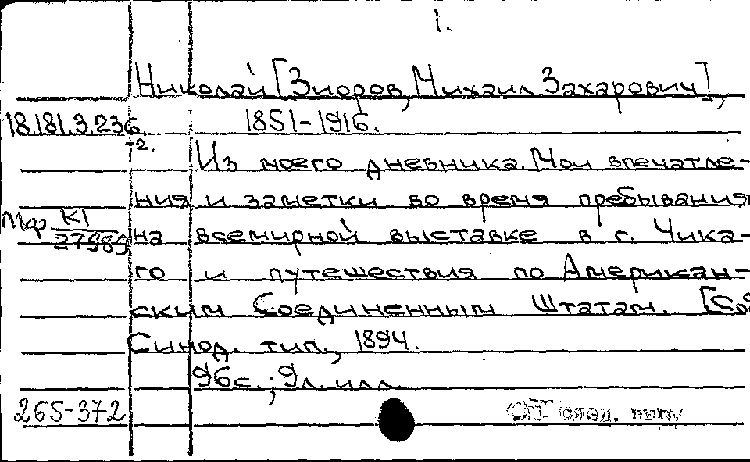 1.
Николай [Зиоров, Михаил Захарович],
18.181.9.236 1851-1916.
-2.
Из моего дневника. Мои впечатле-
ния и заметки во время пребывания
Мкф К1
27989 на всемирной выставке в г. Чика-
го и путешествия по Американ-
ским Соединенным Штатам. [Спб
Синод. тип., 1894.
96 с.; 9 л. илл.
265-372 ОТ след.